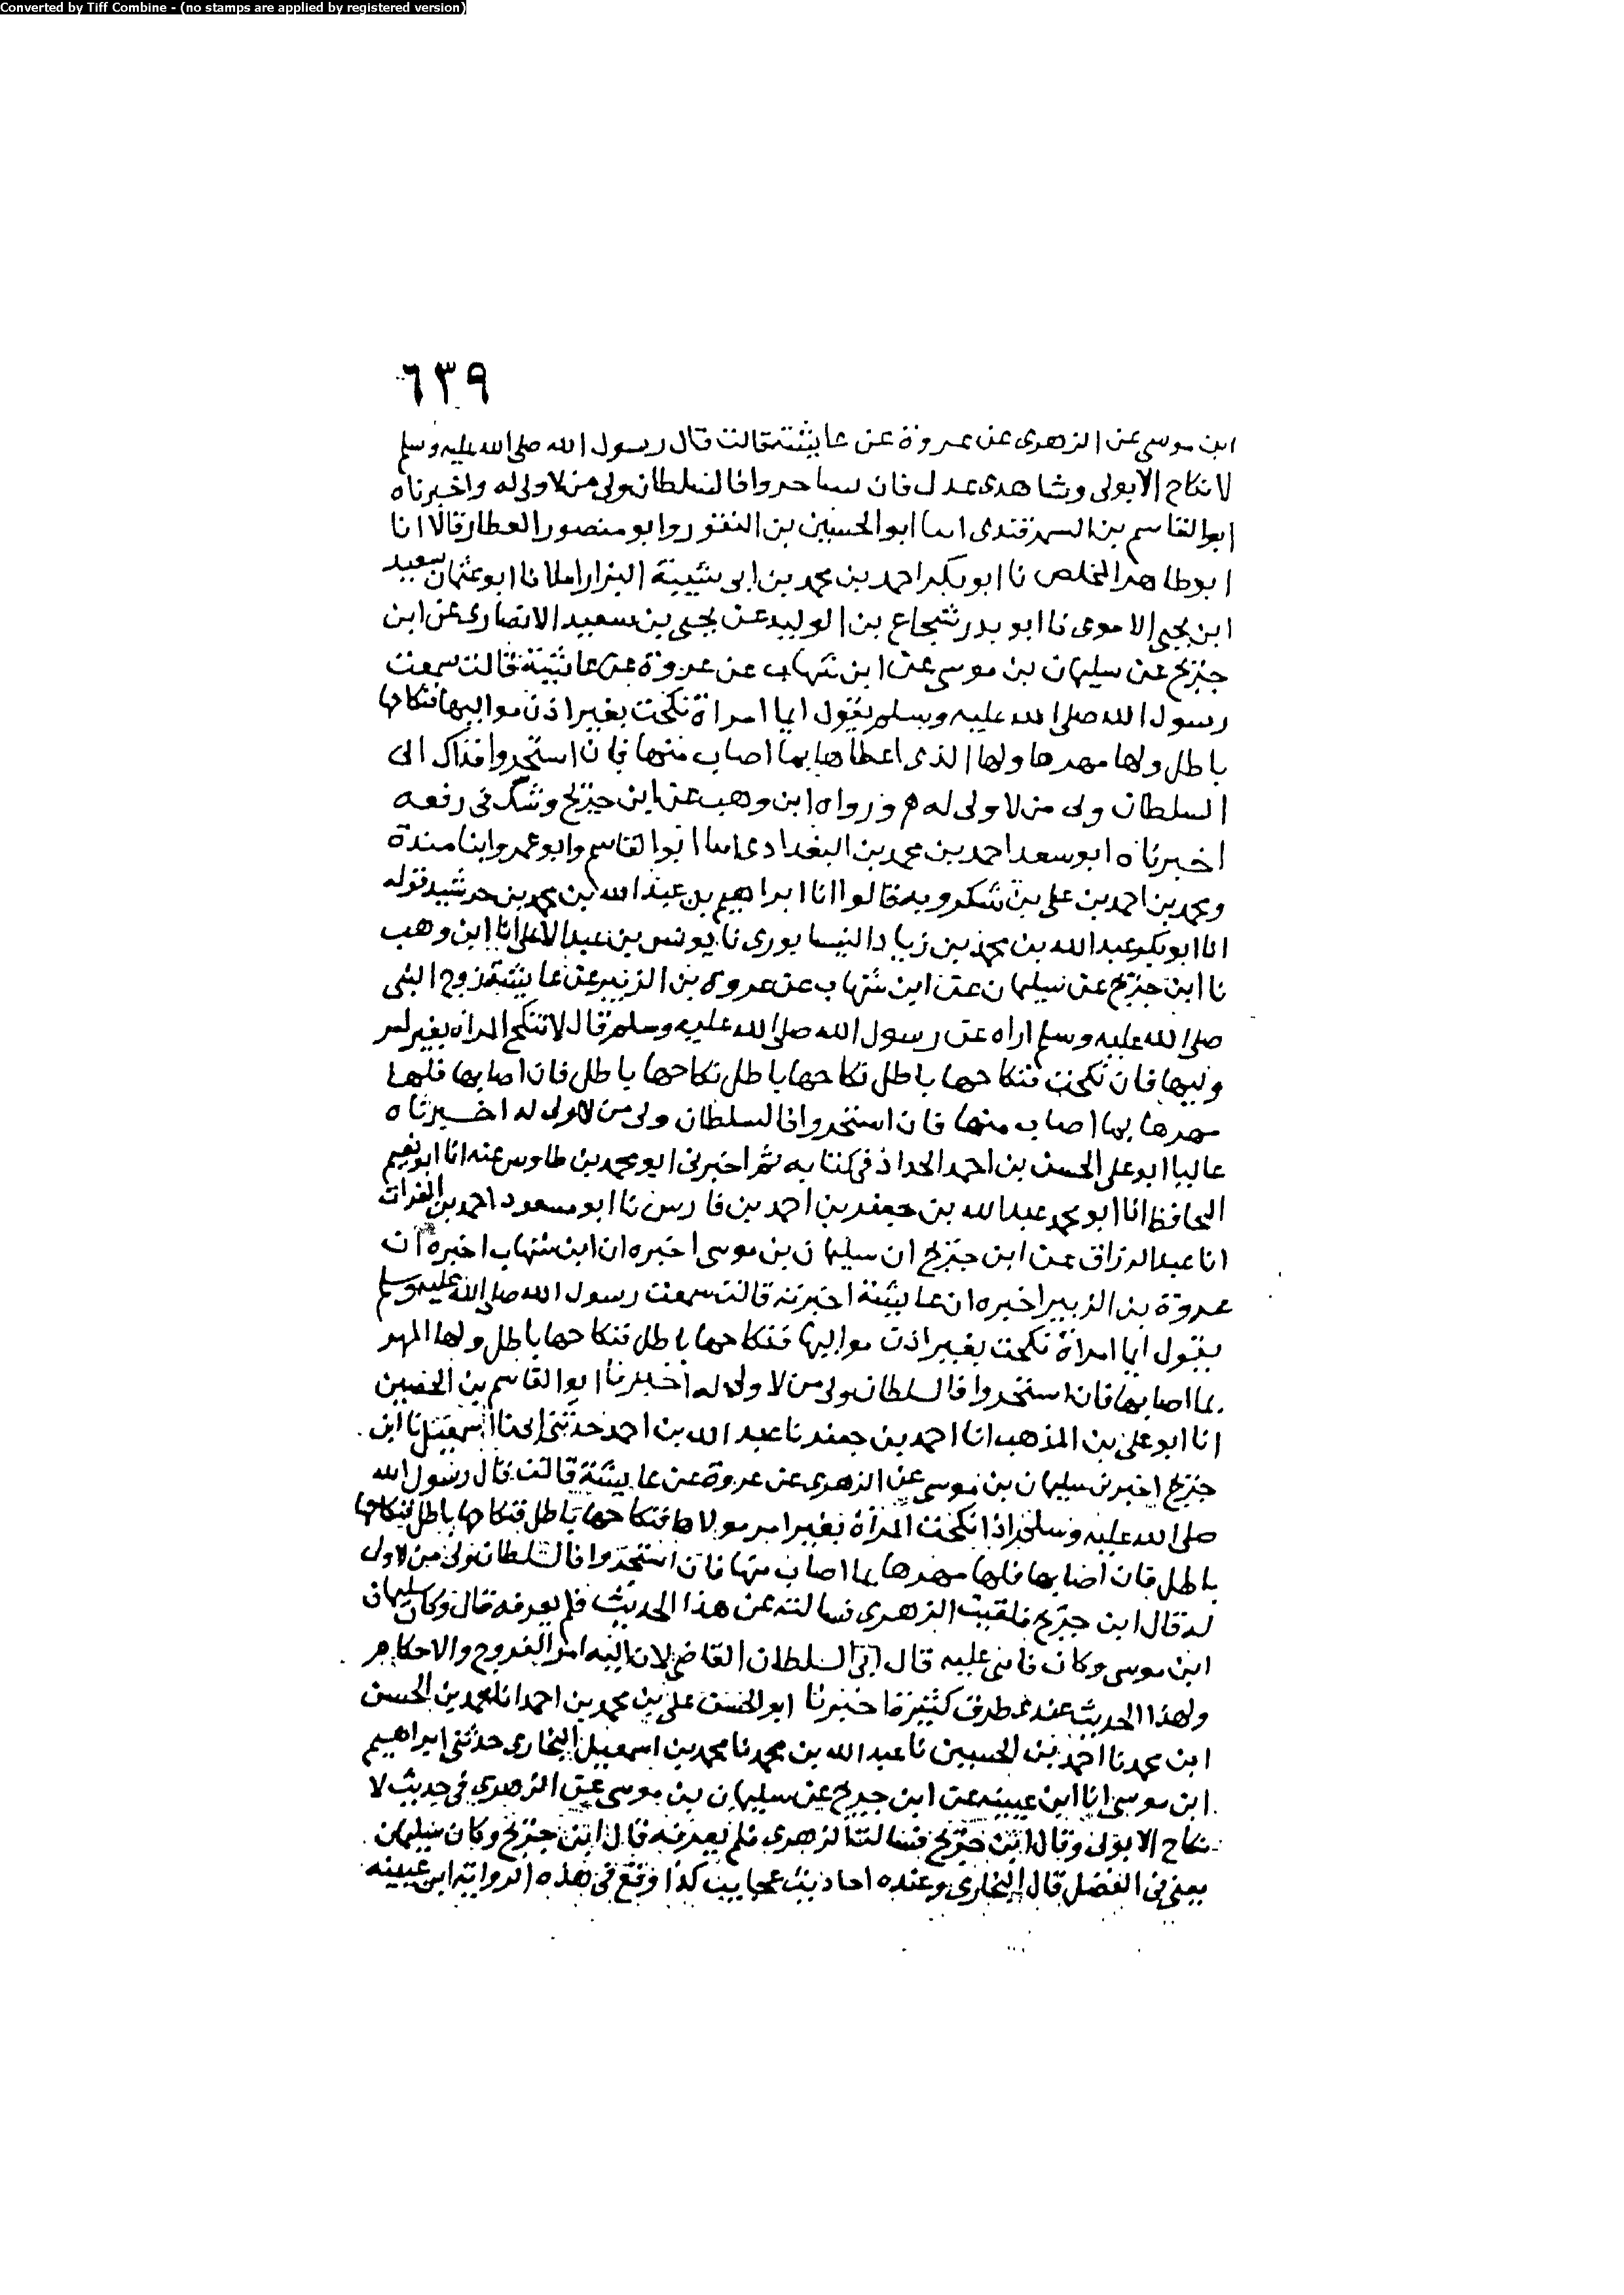 Converted by Tiff Combine - (no stamps are applied by registered version)
٦٣٩
ابن موسى عن الزهرى عن عروة عن عايشة قالت قال رسول الله صلى الله عليه وسلم
لا نكاح الا بولى وشاهدى عدل فان فالسلطان ولى من لا ولى له واخبرناه
ابو القاسم بن السمرقندى انا ابو الحسين بن النقور وابو منصور العطار قالا انا
ابو طاهر المخلص نا ابو بكر احمد بن محمد بن ابى شيبة البزار املا نا ابو عثمان سعيد
ابن يحيى الاموى نا ابو بدر شجاع بن الوليد عن يحيى بن سعيد الانصارى عن ابن
جريج عن سليمان بن موسى عن ابن شهاب عن عروة عن عائشة قالت سمعت
رسول الله صلى الله عليه وسلم يقول ايما امراة نكحت بغير اذن مواليها فنكاحها
باطل ولها مهرها ولها الذى اعطاها بما اصاب منها فان استجروا فذاك الى
السلطان ولى من لا ولى له ورواه ابن وهب عن ابن جريج وشك فى رفعه
اخبرناه ابو سعد احمد بن محمد بن البغدادى انا ابو القاسم وابو عمرو ابنا مندة
ومحمد بن احمد بن على بن شكرويه قالوا انا ابراهيم بن عبد الله بن محمد بن خرشيد قوله
انا ابو بكر عبد الله بن محمد بن زياد النيسابورى نا يونس بن عبد الاعلى انا ابن وهب
نا ابن جريج عن سليمان عن ابن شهاب عن عروة بن الزبير عن عايشة زوج النبى
صلى الله عليه وسلم اراه عن رسول الله صلى الله عليه وسلم قال لا تنكح المراه بغير امر
وليها فان نكحت فنكاحها باطل نكاحها باطل نكاحها باطل فان اصابها فلها
مهرها بما اصاب منها فان استجروا فالسلطان ولى من لا ولى له اخبرناه
عاليا ابو على الحسن بن احمد الحداد فى كتابه ثم اخبرنى ابو محمد بن طاوس عنه انا ابو نعيم
الحافظ انا ابو محمد عبد الله بن جعفر بن احمد بن فارس نا ابو مسعود احمد بن الفرات
انا عبد الرزاق عن ابن جريج ان سليمان بن موسى اخبره ان ابن شهاب اخبره ان
عروة بن الزبير اخبره ان عايشة اخبرته قالت سمعت رسول الله صلى الله عليه وسلم
يقول ايما امراة نكحت بغير اذن مواليها فنكاحها باطل فنكاحها باطل ولها المهر
بما اصابها فان استجروا فالسلطان ولى من لا ولى له اخبرنا ابو القاسم بن الحصين
انا ابو على بن المذهب انا احمد بن جعفر نا عبد الله بن احمد حدثنى ابى نا اسمعيل نا ابن
جريج اخبرنى سليمان بن موسى عن الزهرى عن عروة عن عايشة قالت قال رسول الله
صلى الله عليه وسلم اذا نكحت المراة بغير امر مولاها فنكاحها باطل فنكاحها باطل فنكاحها
باطل فان اصابها فلها مهرها بما اصاب منها فان استجروا فالسلطان ولى من لا ولى
له قال ابن جريج فلقيت الزهرى فسالته عن هذا الحديث فلم يعرفه قال وكان سليمان
ابن موسى وكان فاثنى عليه قال ابى السلطان القاضى لان اليه امر الفروج والاحكام
ولهذا الحديث عندى طرق كثيرة اخبرنا ابو الحسن على بن محمد بن احمد انا محمد بن الحسن
ابن محمد نا احمد بن الحسين نا عبد الله بن محمد نا محمد بن اسمعيل البخارى حدثنى ابراهيم
ابن موسى انا ابن عيينه عن ابن جريج عن سليمان بن موسى عن الزهرى فى حديث لا
نكاح الا بولى وقال ابن جريج فسالت الزهرى فلم يعرفه قال ابن جريج وكان سليمان
يعنى فى الفضل قال البخارى وعنده احاديث عجايب كذا وقع فى هذه الرواية ابن عيينه